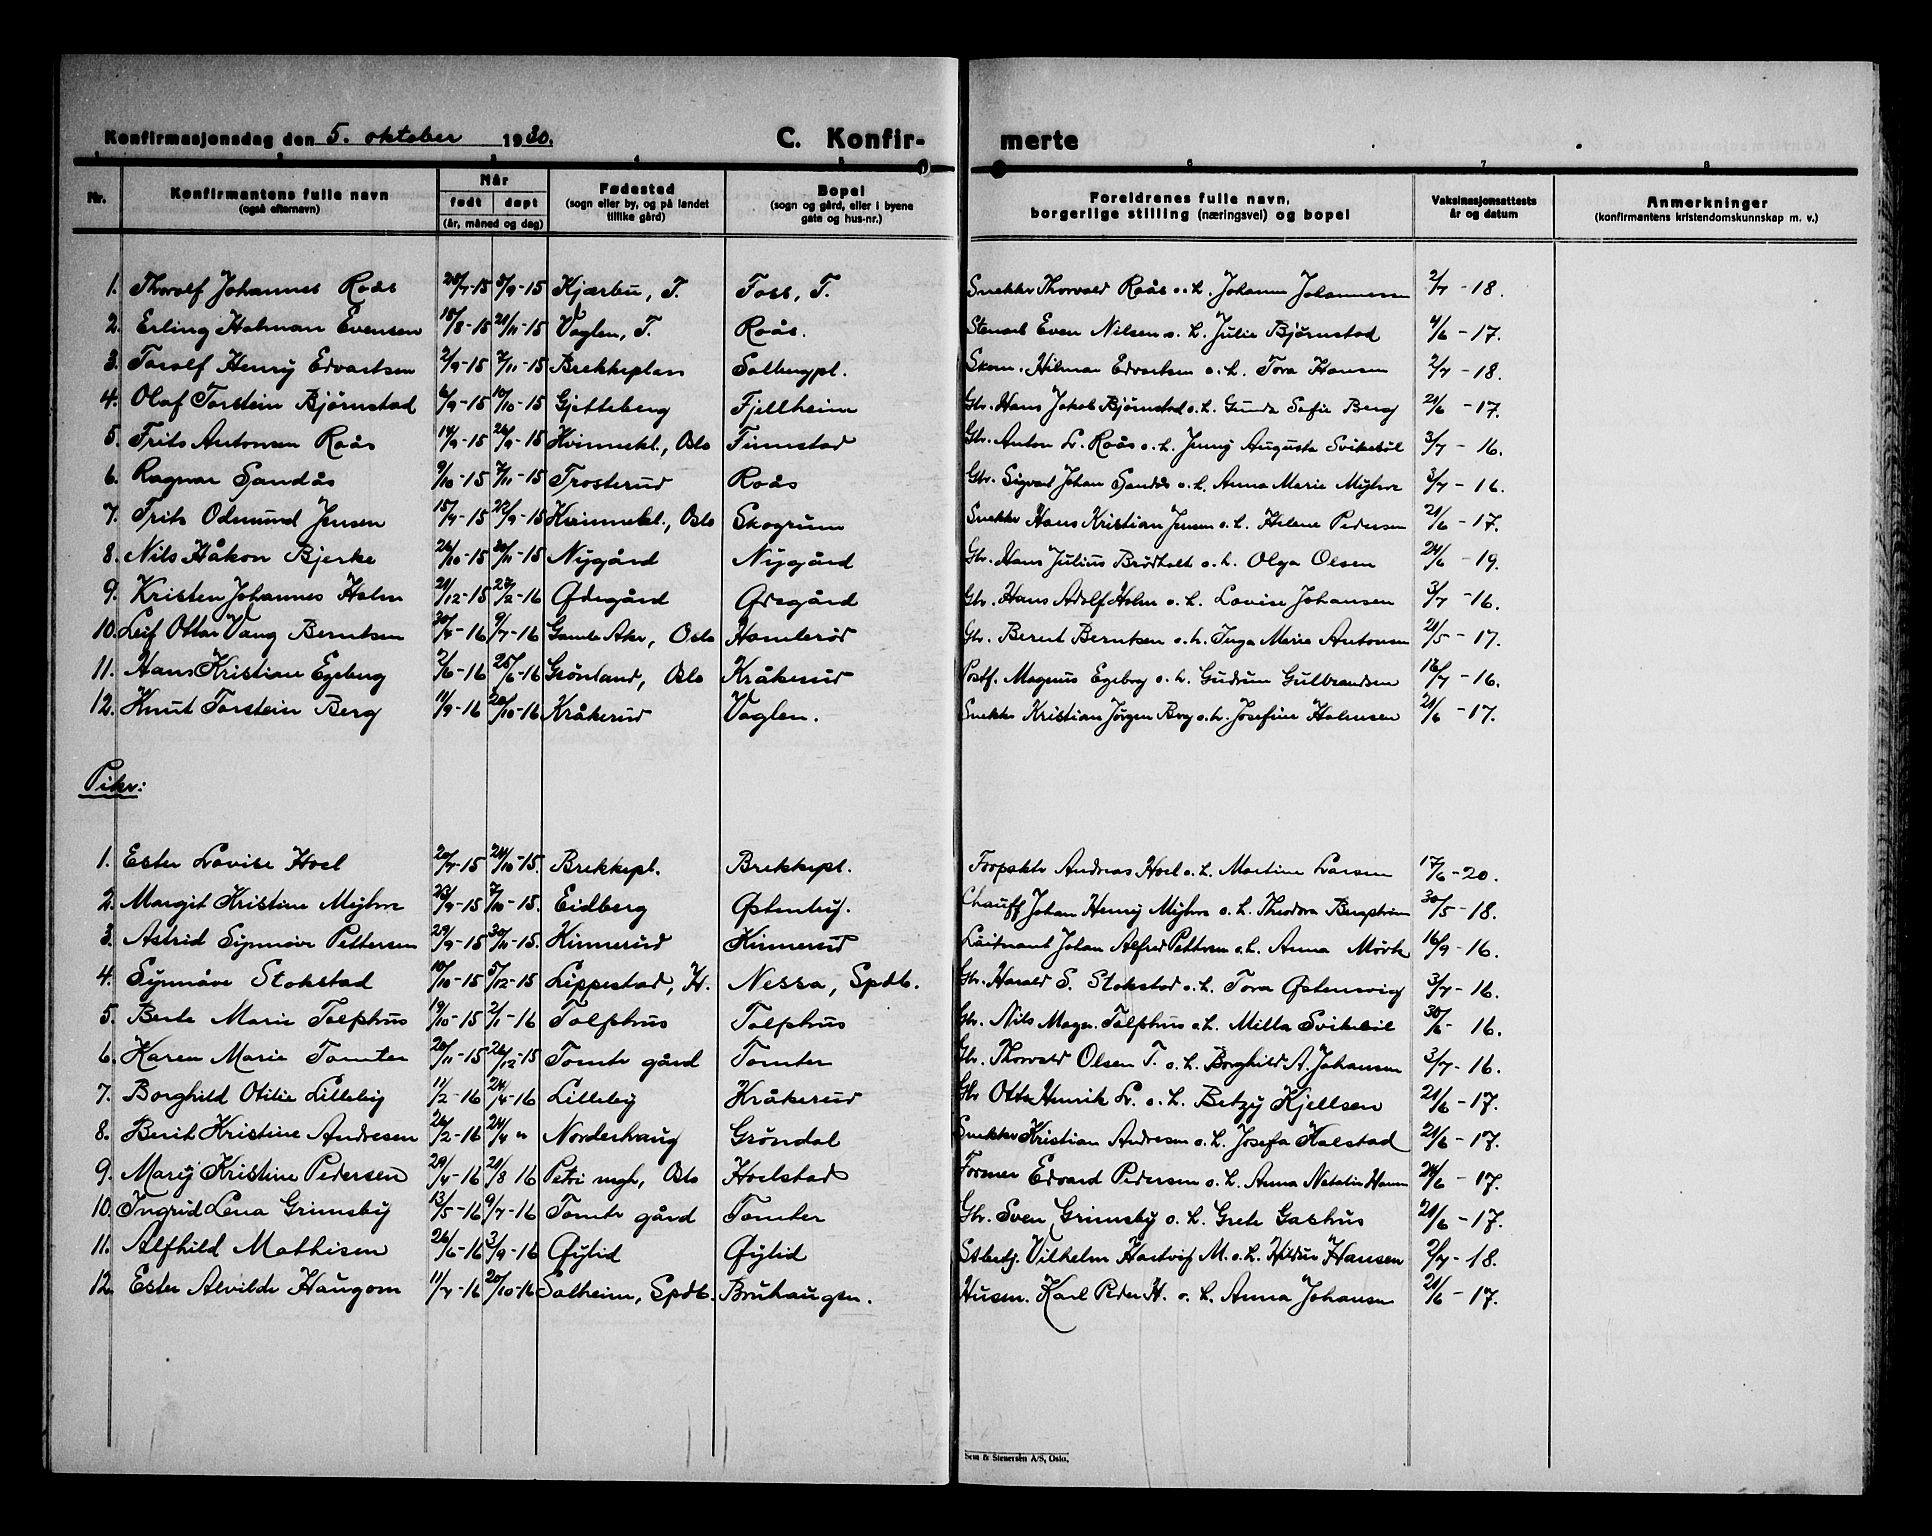 Konfirmasjonsdag den 5. oktober 1930. C. Konfir- merte
1 2 3 4 5 6 7 8
Nr. Konfirmantens fulle navn (også efternavn) Når født døpt (år, måned og dag) Fødested (sogn eller by, og på landet tillike gård) Bopel (sogn og gård, eller i byene gate og hus-nr.) Foreldrenes fulle navn, borgerlige stilling (næringsvei) og bopel Vaksinasjonsattests år og datum Anmerkninger (konfirmantens kristendomskunnskap m. v.)
1. Thorolf Johannes Roås 28/7-15 5/9-15 Kjærbu, T. Foss, T. Snekker Thorvald Roås o.h. Johanne Johannessen 2/7 - 18.
2. Erling Holman Evensen 15/8-15 21/11-15 Vaglen, T. Roås. Stenarb. Even Nilsen o.h. Julie Bjørnstad 4/6 - 17.
3. Torolf Henry Edvartsen 2/9-15 7/11-15 Brekkeplan Solbergpl. Skom. Hilmar Edvartsen o.h. Tora Hansen 2/7 - 18.
4. Olaf Torstein Bjørnstad 6/9-15 10/10-15 Gjetteberg Fjellheim Gbr. Hans Jakob Bjørnstad o.h. Gunda Sofie Berg 21/6 - 17.
5. Frits Antonsen Roås 14/9-15 26/9-15 Kvinnekl., Oslo Finnstad Gbr. Anton L. Roås o.h. Jenny Augusta Svikebøl 3/7 - 16.
6. Ragnar Sandås 9/10-15 7/11-15 Trosterud Roås Gbr. Sigvart Johan Sandås o.h. Anna Marie Myhre 3/7 - 16.
7. Frits Odmund Jensen 15/7-15 22/9-15 Kvinnekl., Oslo Skogrum Snekker Hans Kristian Jensen o.h. Helene Pedersen 21/6 - 17.
8. Nils Håkon Bjerke 26/10-15 20/11-15 Nygård Nygård Gbr. Hans Julius Brødholt o.h. Olga Olsen 24/6 - 19.
9. Kristen Johannes Holm 21/12-15 27/2-16 Ødegård Ødegård Gbr. Hans Adolf Holm o.h. Lovise Johansen 3/7 - 16.
10. Leif Ottar Vang Berntsen 9/7-16 Gamle Aker, Oslo Homlerød Gbr. Bernt Berntsen o.h. Inga Marie Antonsen 21/5 - 17.
11. Hans Kristian Egeberg 2/6-16 25/6-16 Grønland, Oslo Kråkerud Postf. Magnus Egeberg o.h. Gudrun Gulbrandsen 16/7 - 16.
12. Knut Torstein Berg 11/9-16 20/10-16 Kråkerud Vaglen. Snekker Kristian Jørgen Berg o.h. Josefine Holmsen 21/6 - 17.
Piker:
1. Ester Lovise Hoel 20/7-15 24/10-15. Brekkepl. Brekkepl. Andreas Hoel o.h. Martine Larsen 17/6 - 20.
2. Margit Kristine Myhre 23/9-15 7/10-15. Eidberg Østenby. Chauff Johan Henry Myhre o.h. Theodora Bergstrøm 30/5 - 18.
3. Astrid Synnøve Pettersen 29/9-15 30/11-15. Kinnerud Kinnerud Løitnant Johan Alfred Pettersen o.h. Anna Mørk 16/9 - 16.
4. Synnøve Stokstad 10/10-15 5/12-15 Lippestad, H. Nessa, Spdb. Gbr. Harald S. Stokstad o.h. Tora Østensvig 3/7 - 16.
5. Berte Marie Tolfshus 19/10-15 2/1-16 Tolfshus Tolfshus Gbr. Nils Magn. Tolfshus o.h. Milla Svikebøl 30/6 - 16.
6. Karen Marie Tomter 20/11-15 26/12-15 Tomter gård Tomter Gbr. Thorvald Olsen T. o.h. Borghild A. Johansen 3/7 - 16.
7. Borghild Otilie Lilleby 11/2-16 24/4-16 Lilleby Kråkerud Gbr Otto Henrik L. o.h. Betzy Kjellsen 21/6 - 17.
8. Berit Kristine Andresen 26/2-16 24/4 " Norderhaug Grøndal Snekker Kristian Andresen o.h. Josefa Kalstad 21/6 - 17.
9. Mary Kristine Pedersen 29/4-16 21/8 16 Petri mgh, Oslo Hoelstad Former Edvard Pedersen o.h. Anna Natalie Hansen 24/6 - 17.
10. Ingrid Lena Grimsby 13/5-16 9/7-16 Tomter gård Tomter Gbr. Sven Grimsby o.h. Grete Gashus 21/6 - 17.
11. Alfhild Mathisen 26/6-16 3/9-16 Øylid Øylid Vilhelm Hartvig M. o.h. Hildur Hansen 2/7 - 18.
12. Ester Alvilde Haugom 11/7-16 20/10-16 Solheim, Spdb. Bruhaugen. Husm. Karl Peder H. o.h. Anna Johansen 21/6 - 17.
Sem & Stenersen A/S, Oslo.